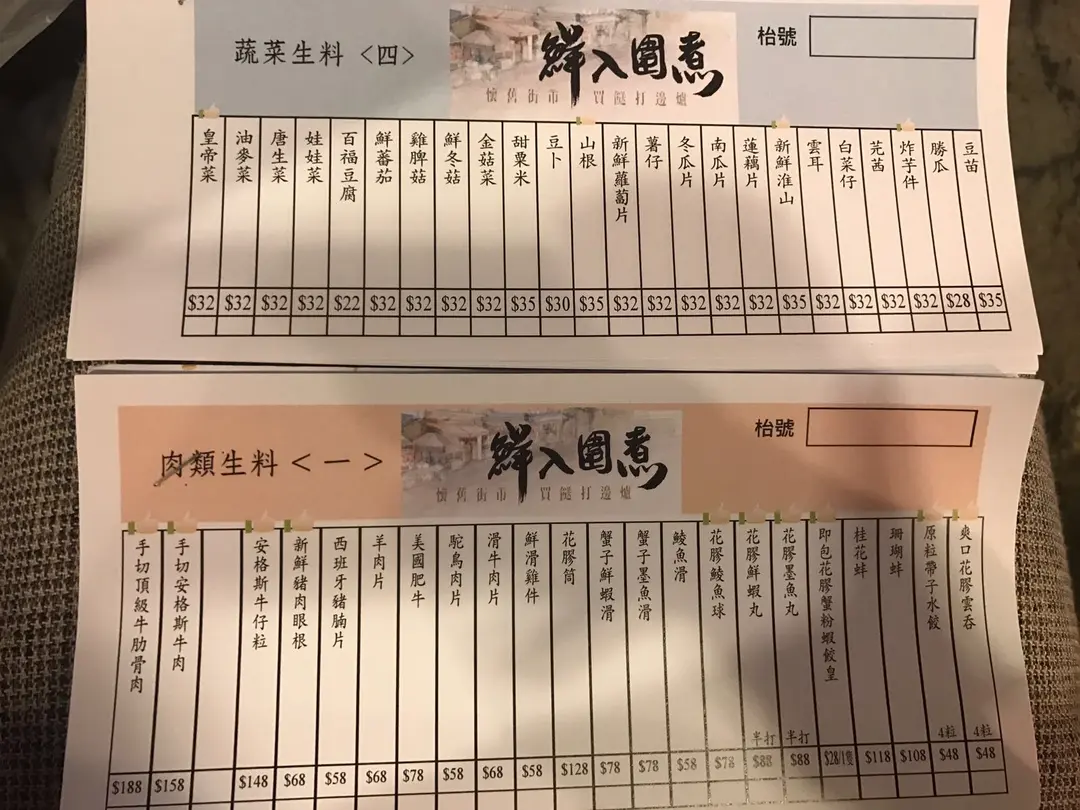 蔬菜生料 <四>
鮮入圍煮
懷舊街市 買餸打邊爐
枱號
皇帝菜 $32
油麥菜 $32
唐生菜 $32
娃娃菜 $32
百福豆腐 $22
鮮番茄 $32
雞脾菇 $32
鮮冬菇 $32
金菇菜 $32
甜粟米 $35
豆卜 $30
山根 $35
新鮮蘿蔔片 $32
薯仔 $32
冬瓜片 $32
南瓜片 $32
蓮藕片 $32
新鮮淮山 $35
雲耳 $32
白菜仔 $32
芫茜 $32
炸芋件 $32
勝瓜 $28
豆苗 $35
肉類生料 <一>
鮮入圍煮
懷舊街市 買餸打邊爐
枱號
手切頂級牛肋骨肉 $188
手切安格斯牛肉 $158
安格斯牛仔粒 $148
新鮮豬肉眼根 $68
西班牙豬腩片 $58
羊肉片 $68
美國肥牛 $78
鴕鳥肉片 $58
滑牛肉片 $68
鮮滑雞件 $58
花膠筒 $128
蟹子鮮蝦滑 $78
蟹子墨魚滑 $78
鯪魚滑 $58
花膠鯪魚球 $78
花膠鮮蝦丸 半打 $88
花膠墨魚丸 半打 $88
即包花膠蟹粉蝦餃皇 $28/1隻
桂花蚌 $118
珊瑚蚌 $108
原粒帶子水餃 4粒 $48
爽口花膠雲吞 4粒 $48